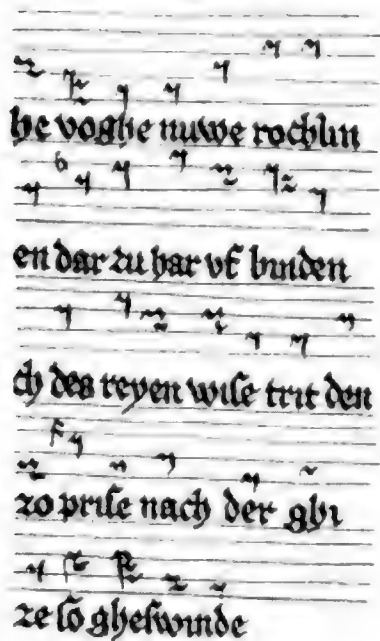 he voghe nuwe rochlin
en dar zu har vf binden
ch des reyen wise trit den
zo prise nach der ghi
ze so gheswinde